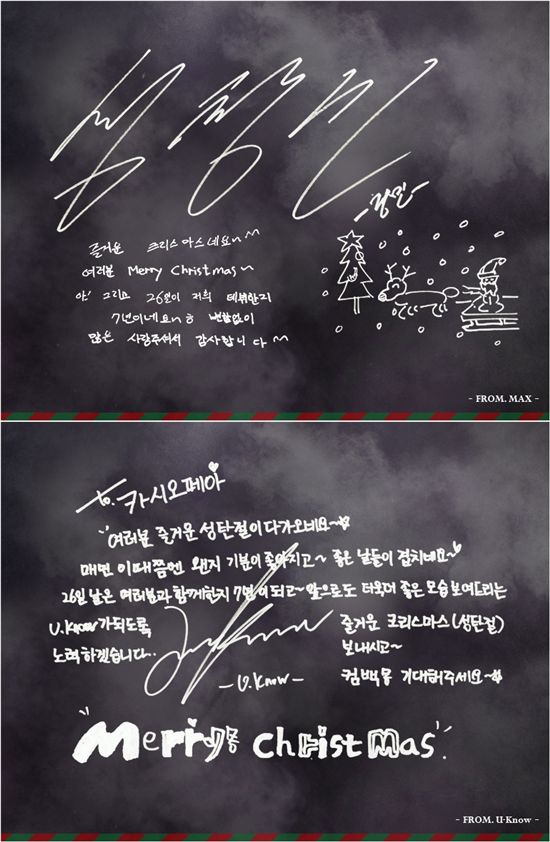 심창민
-창민-
즐거운 크리스마스네요~^^
여러분 Merry Christmas~
아! 그리고 26일이 저희 데뷔한지
7년이네요~ㅎ 변함없이
많은 사랑주셔서 감사합니다~^^
- FROM. MAX -
to. 카시오페아♥
"여러분 즐거운 성탄절이 다가오네요~☆
매년 이때쯤엔 왠지 기분이 좋아지고~ 좋은 날들이 겹치네요~♥
26일 날은 여러분과 함께한지 7년이 되고~앞으로도 더욱더 좋은 모습 보여드리는
U.Know가되도록
노력하겠습니다..
즐거운 크리스마스(성탄절)
보내시고~
컴백도 기대해주세요~☆
-U.Know-
"Merry christmas".
- FROM. U-Know -